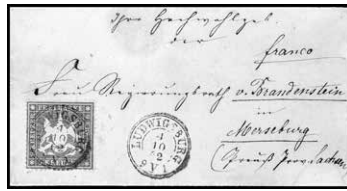 Ihro Hochwohlgeb.
der
franco
Frau Regierungsrath v. Brandenstein
in
Merseburg
(Preuß. Prov. Sachsen
LUDWIGSBURG
4
10
2